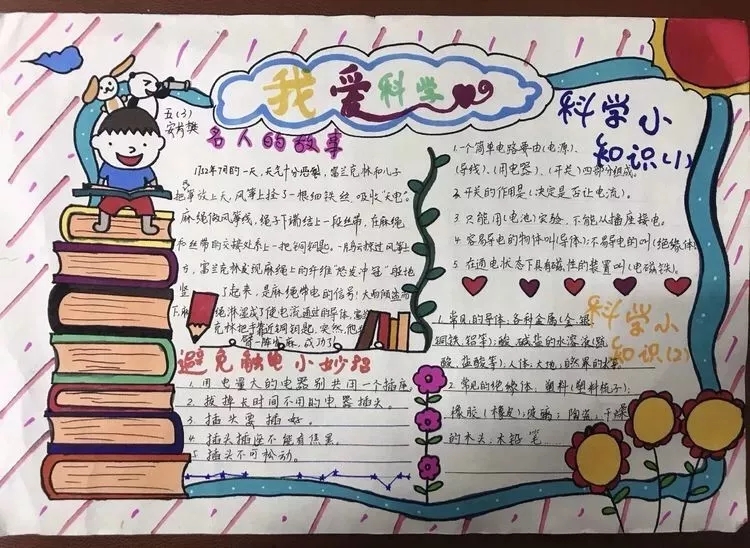 我爱科学
五(3)
名人的故事
1752年7月的一天,天气十分恶劣,富兰克林和儿子
把风筝放上天,风筝上拴了一根细铁丝,吸收"天电"。
麻绳做风筝线,绳子下端结上一段丝带,在麻绳
和丝带的交接处系上一把铜钥匙。一片乌云掠过风筝上
方,富兰克林发现麻绳上的纤维"怒发冲冠"般地
竖了起来,是麻绳带电的信号!大雨倾盆而
下,麻绳淋湿变了使电流通过的导体,富兰
克林把手靠近铜钥匙,突然,他
臂一阵发麻,成功了
避免触电小妙招
1. 用电量大的电器别共用一个插座。
2. 拔掉长时间不用的电器插头。
3. 插头要插好。
4. 插头插座不能有焦黑。
5. 插头不可松动。
科学小
知识(1)
1.一个简单电路要由(电源)、
(导线)、(用电器)、(开关)四部分组成。
2.开关的作用是(决定是否让电流)。
3. 只能用(电池)实验,不能从插座接电。
4. 容易导电的物体叫(导体);不易导电的叫(绝缘体)
5. 在通电状态下具有磁性的装置叫(电磁铁)。
科学小
知识(2)
1.常见的导体:各种金属(金、银、
铜、铁、铝等);酸、碱、盐的水溶液(硫
酸、盐酸等);人体、大地、自然界的水等
2.常见的绝缘体:塑料(塑料梳子);
橡胶(橡皮);玻璃;陶瓷;干燥
的木头、木铅笔……